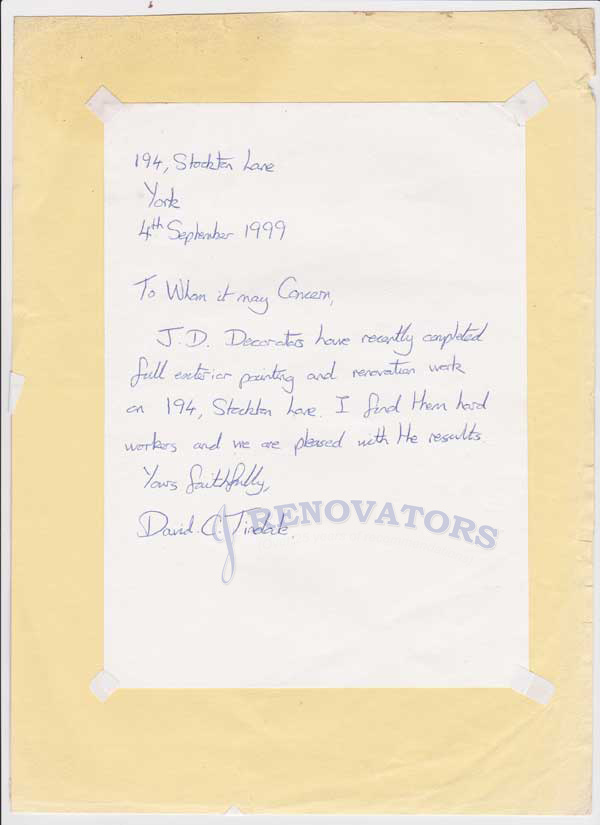 194, Stockton Lane
York
4th September 1999
To Whom it may Concern,
J.D. Decorators have recently completed
full exterior painting and renovation work
on 194, Stockton Lane. I find them hard
workers and we are pleased with the results
Yours faithfully,
David. C. Tindale.
J RENOVATORS